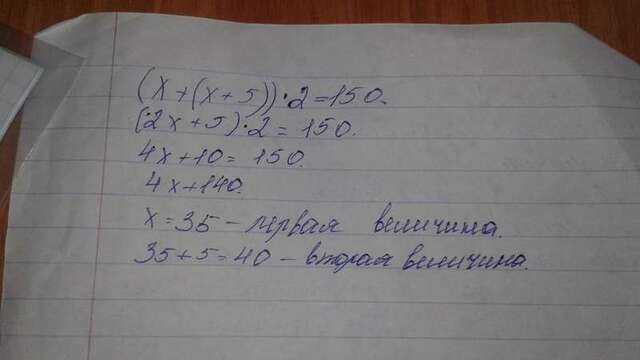 (x+(x+5))·2=150.
(2x+5)·2=150.
4x+10=150.
4x+140.
x=35 – первая величина.
35+5=40 – вторая величина.